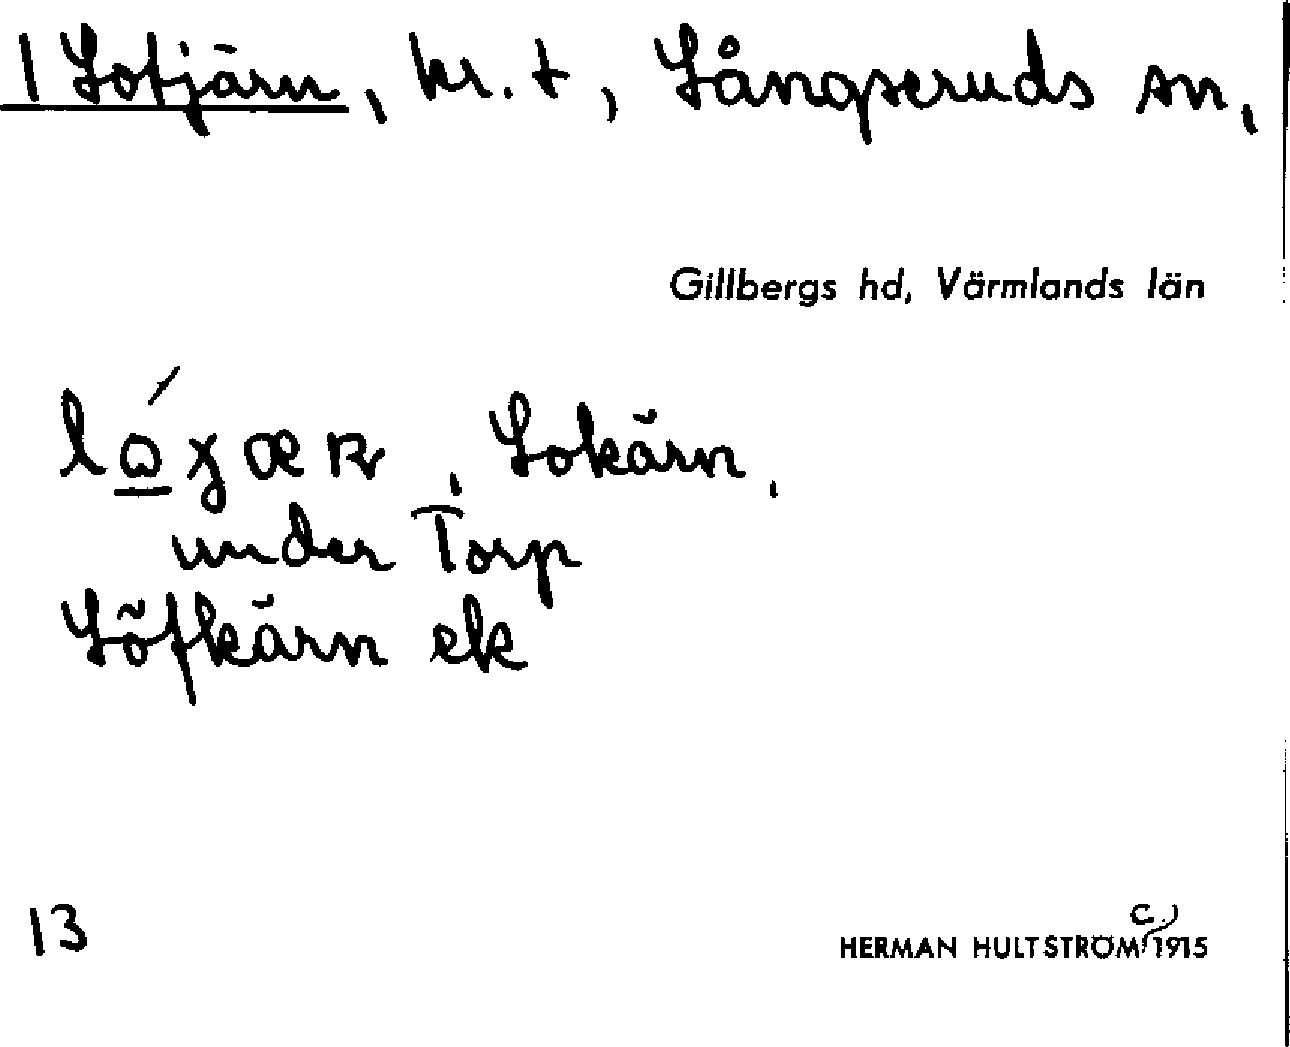 1 Lotjärn, kr. t, Långseruds sn,
Gillbergs hd, Värmlands län
Lokärn,
under Torp
Löfkärn ek
13
C.
HERMAN HULTSTRÖM 1915